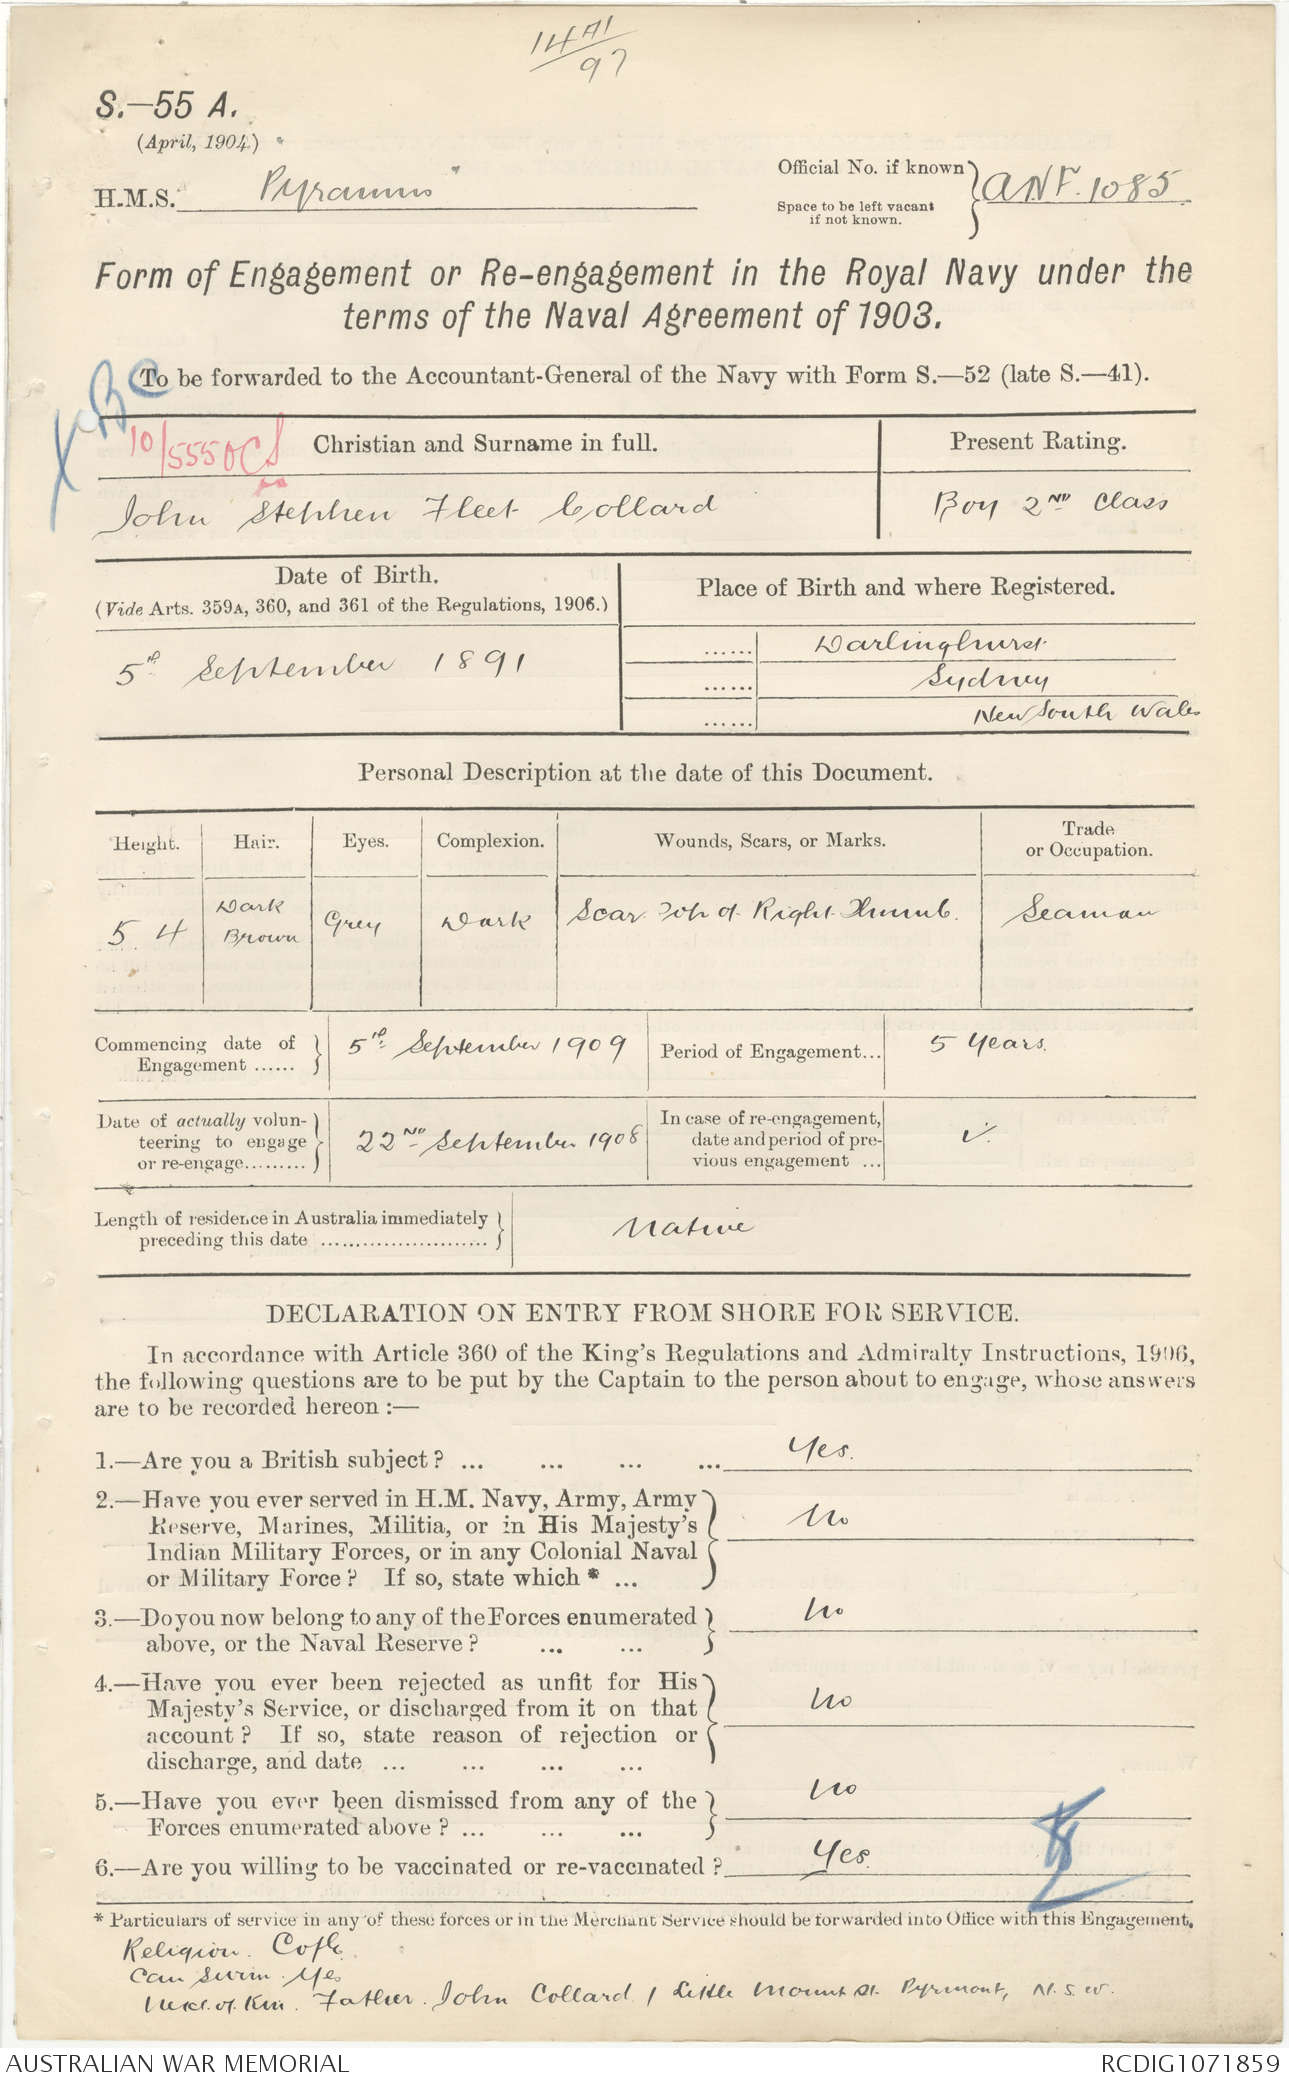 14A1
97
S.—55 A.
(April, 1904.)
H.M.S. Pyramus
Official No. if known
Space to be left vacant
if not known.
A.N.F. 1085.
Form of Engagement or Re-engagement in the Royal Navy under the
terms of the Naval Agreement of 1903.
To be forwarded to the Accountant-General of the Navy with Form S.—52 (late S.—41).
10/555
Christian and Surname in full.
Present Rating.
John Stephen Fleet Collard
Boy 2ND Class
Date of Birth.
(Vide Arts. 359A, 360, and 361 of the Regulations, 1906.)
Place of Birth and where Registered.
5th September 1891
...... Darlinghurst
...... Sydney
...... New South Wales
Personal Description at the date of this Document.
Height. Hair. Eyes. Complexion. Wounds, Scars, or Marks. Trade
or Occupation.
5. 4 Dark
Brown Grey Dark Scar Top of Right Thumb. Seaman
Commencing date of
Engagement ...... 5th September 1909 Period of Engagement... 5 Years.
Date of actually volun-
teering to engage
or re-engage......... 22ND September 1908 In case of re-engagement,
date and period of pre-
vious engagement ...
Length of residence in Australia immediately
preceding this date ........................ Native
DECLARATION ON ENTRY FROM SHORE FOR SERVICE.
In accordance with Article 360 of the King's Regulations and Admiralty Instructions, 1906,
the following questions are to be put by the Captain to the person about to engage, whose answers
are to be recorded hereon :—
1.—Are you a British subject? ... ... ... ... Yes.
2.—Have you ever served in H.M. Navy, Army, Army
Reserve, Marines, Militia, or in His Majesty's
Indian Military Forces, or in any Colonial Naval
or Military Force? If so, state which * ... No
3.—Do you now belong to any of the Forces enumerated
above, or the Naval Reserve? ... ... No
4.—Have you ever been rejected as unfit for His
Majesty's Service, or discharged from it on that
account? If so, state reason of rejection or
discharge, and date ... ... ... ... No
5.—Have you ever been dismissed from any of the
Forces enumerated above? ... ... ... No
6.—Are you willing to be vaccinated or re-vaccinated? Yes.
* Particulars of service in any of these forces or in the Merchant Service should be forwarded into Office with this Engagement.
Religion. CofE.
Can Swim. Yes
Next of Kin. Father. John Collard 1 Little Mount St. Pyrmont, N.S.W.
AUSTRALIAN WAR MEMORIAL
RCDIG1071859